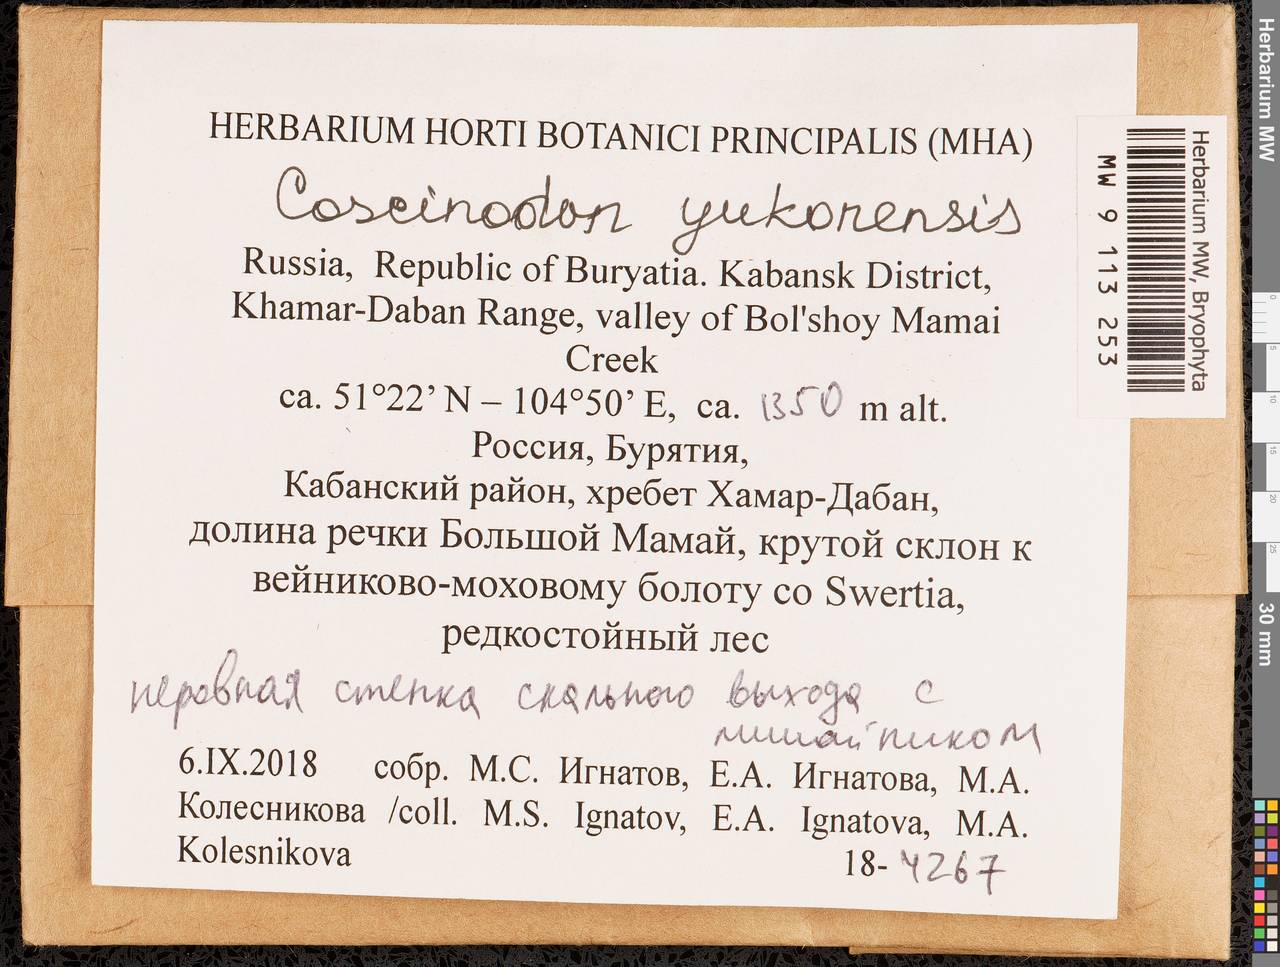 HERBARIUM HORTI BOTANICI PRINCIPALIS (MHA)
Coscinodon yukonensis
Russia, Republic of Buryatia. Kabansk District,
Khamar-Daban Range, valley of Bol'shoy Mamai
Creek
ca. 51°22’ N – 104°50’ E, ca. 1350 m alt.
Россия, Бурятия,
Кабанский район, хребет Хамар-Дабан,
долина речки Большой Мамай, крутой склон к
вейниково-моховому болоту со Swertia,
редкостойный лес
неровная стенка скального выхода с
лишайником
6.IX.2018 собр. М.С. Игнатов, Е.А. Игнатова, М.А.
Колесникова /coll. M.S. Ignatov, E.A. Ignatova, M.A.
Kolesnikova
18-4267
Herbarium MW, Bryophyta
MW 9 113 253
Herbarium MW
0
5
10
15
20
25
30 mm
Herbarium MW